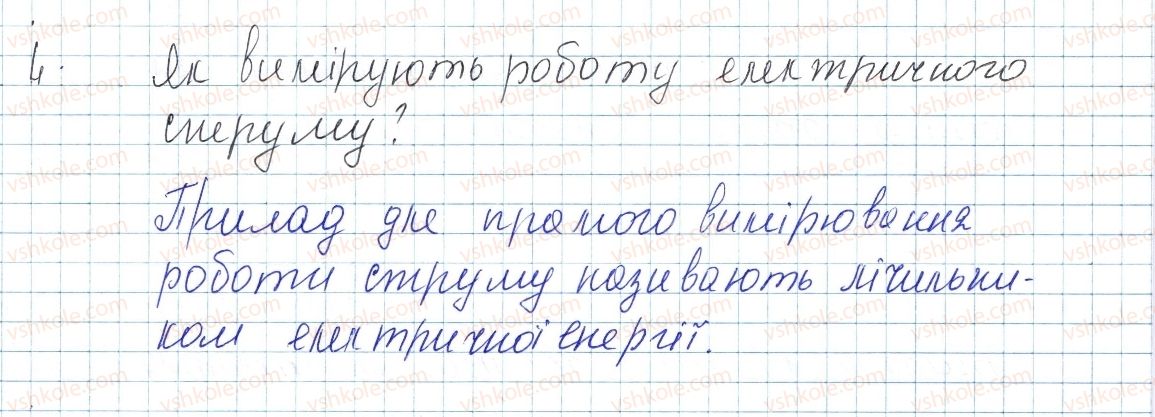 4. Як вимірують роботу електричного
струму?
Прилад для прямого вимірювання
роботи струму називають лічильни-
ком електричної енергії.